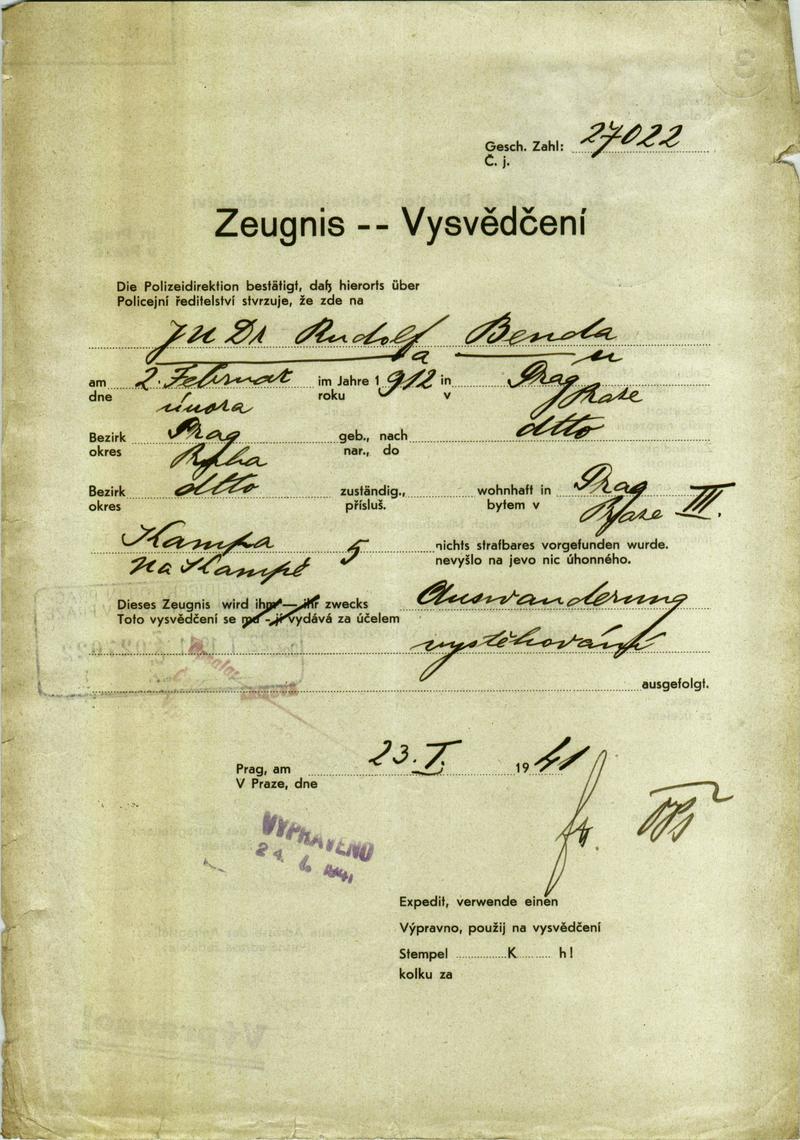 Gesch. Zahl: 27022
Č. j.
Zeugnis -- Vysvědčení
Die Polizeidirektion bestätigt, daß hierorts über
Policejní ředitelství stvrzuje, že zde na
JUDr Rudolfa Bendu
a u
am 2. Februar im Jahre 1912 in Prag
dne února roku v Praze
Bezirk Prag geb., nach dtto
okres Praha nar., do
Bezirk dtto zuständig., wohnhaft in Prag
okres přísluš. bytem v Praze III.
Kampa 5 nichts strafbares vorgefunden wurde.
Na Kampě nevyšlo na jevo nic úhonného.
Dieses Zeugnis wird ihm — ihr zwecks Auswanderung
Toto vysvědčení se mu - jí vydává za účelem
vystěhování
ausgefolgt.
Prag, am 23. I. 1941
V Praze, dne
VYPRAVENO
24. 1941
Expedit, verwende einen
Výpravno, použij na vysvědčení
Stempel K h!
kolku za